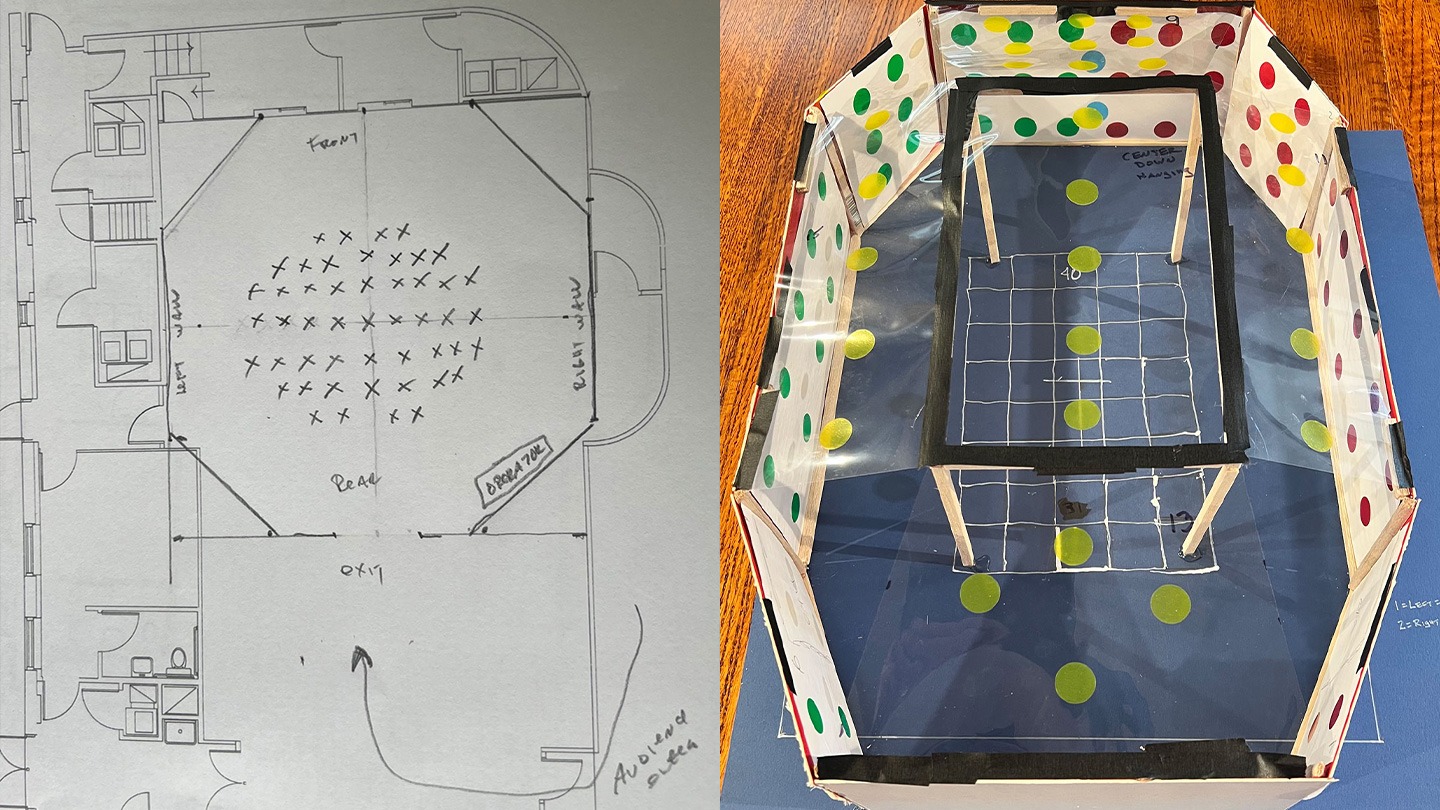 FRONT
LEFT WALL
RIGHT WALL
REAR
OPERATOR
EXIT
AUDIENCE
CENTER
DOWN
HANGING
40
31
13
1=LEFT=
2=RIGHT